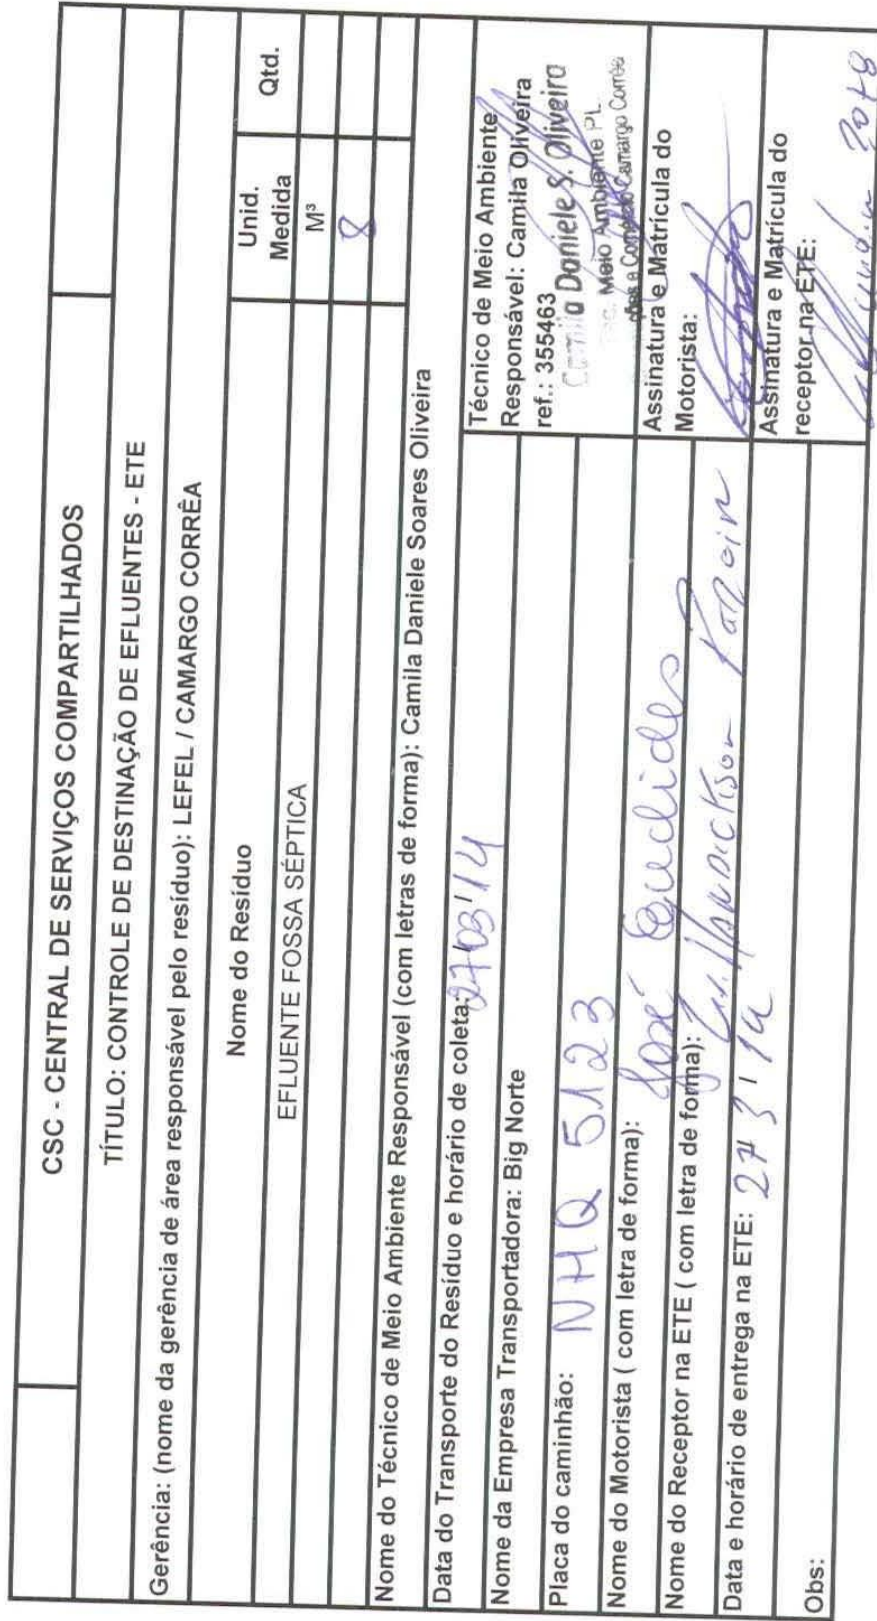 CSC - CENTRAL DE SERVIÇOS COMPARTILHADOS
TÍTULO: CONTROLE DE DESTINAÇÃO DE EFLUENTES - ETE
Gerência: (nome da gerência de área responsável pelo resíduo): LEFEL / CAMARGO CORRÊA
Nome do Resíduo
Unid. Medida
Qtd.
EFLUENTE FOSSA SÉPTICA
M³
8
Nome do Técnico de Meio Ambiente Responsável (com letras de forma): Camila Daniele Soares Oliveira
Data do Transporte do Resíduo e horário de coleta: 27/03/14
Nome da Empresa Transportadora: Big Norte
Placa do caminhão: NHQ 5123
Nome do Motorista ( com letra de forma): José Euclides
Nome do Receptor na ETE ( com letra de forma):
Data e horário de entrega na ETE: 27 3 14
Obs:
Técnico de Meio Ambiente
Responsável: Camila Oliveira
ref.: 355463
Camila Daniele S. Oliveira
Tec. Meio Ambiente PL
ções e Comércio Camargo Corrêa
Assinatura e Matrícula do
Motorista:
Assinatura e Matrícula do
receptor na ETE: